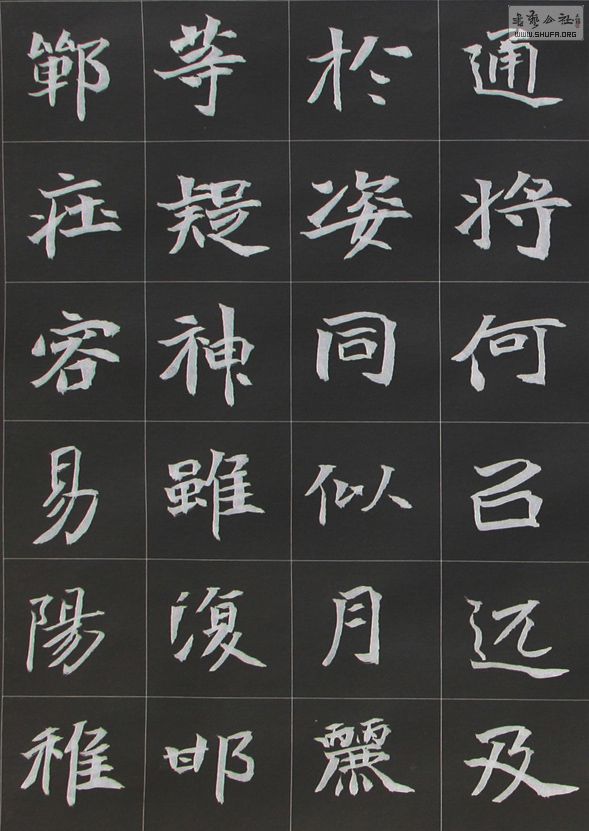 通将何召远及
於姿同似月麗
等疑神雖復邯
鄲庄容易陽稚
書藝公社
WWW.SHUFA.ORG